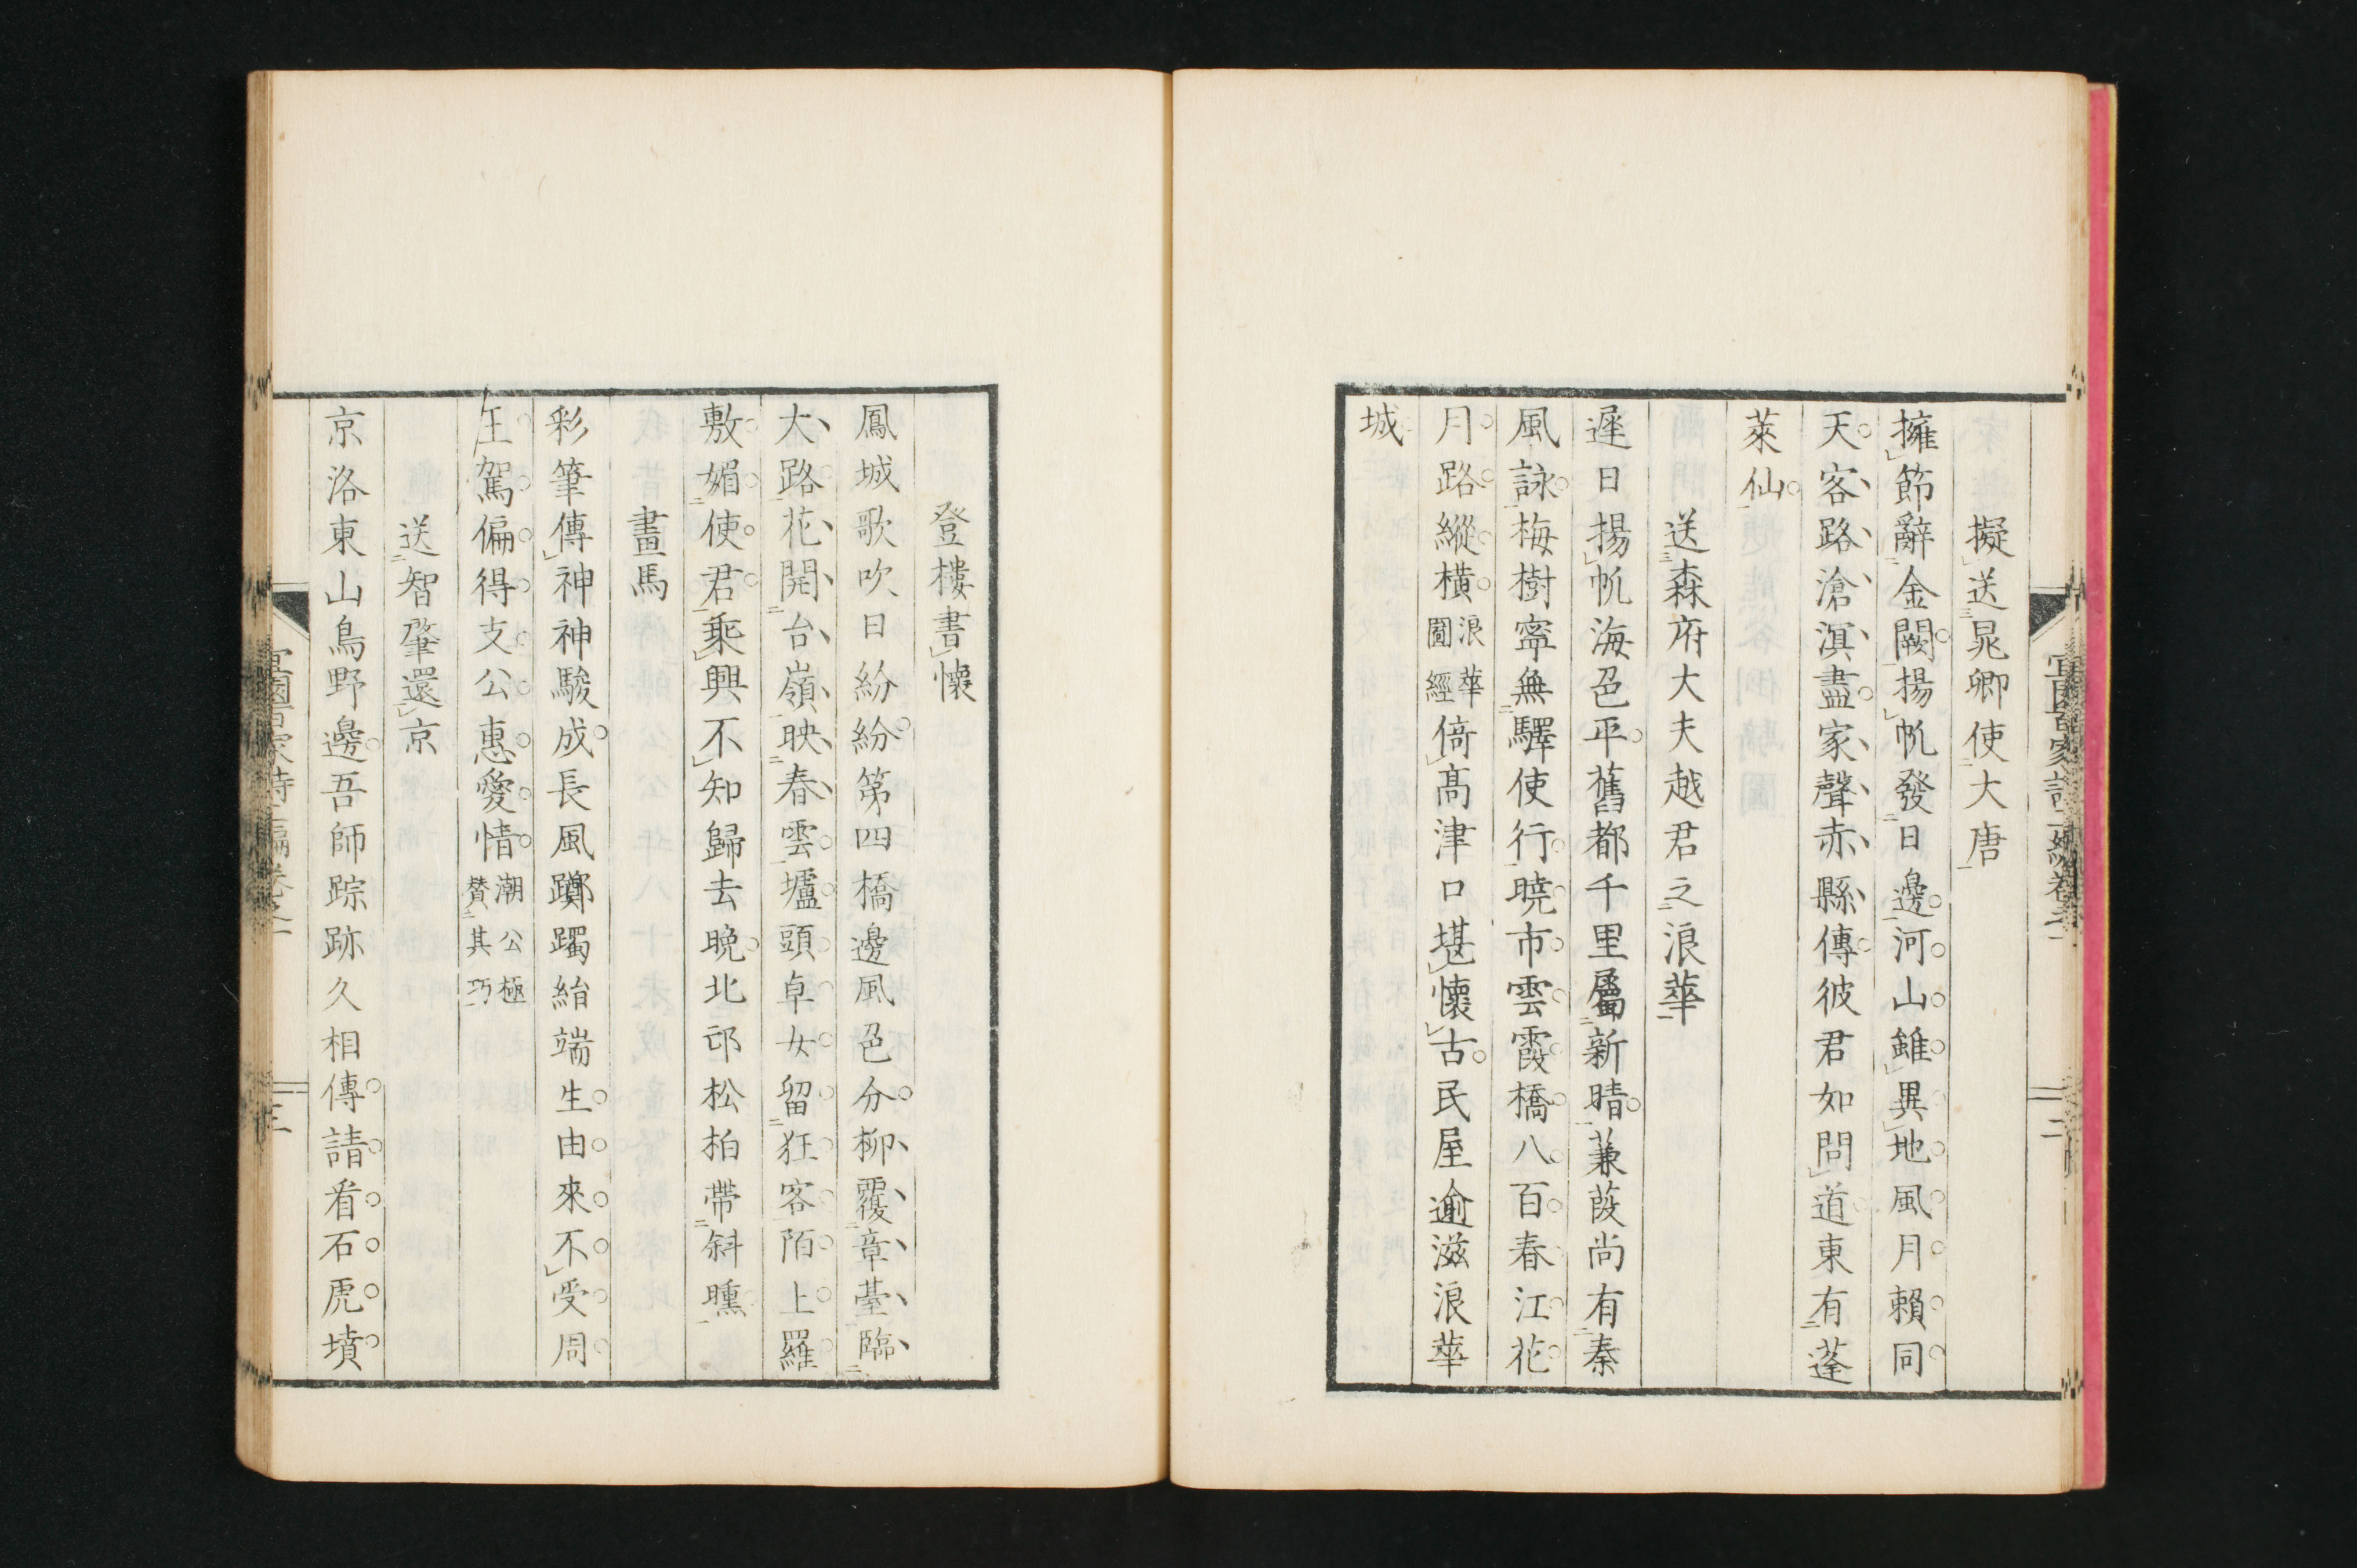 擬送晁卿使大唐
擁節辭金闕揚帆發日邊河山雖異地風月賴同
天客路滄溟盡家聲赤縣傳彼君如問道東有蓬
萊仙
送森府大夫越君之浪華
遲日揚帆海色平舊都千里屬新晴蒹葭尚有秦
風詠梅樹寧無驛使行曉市雲霞橋八百春江花
月路縱橫浪華圖經倚高津口堪懷古民屋逾滋浪華
城
登樓書懷
鳳城歌吹日紛紛第四橋邊風色分柳覆章臺臨
大路花開台嶺映春雲壚頭卓女留狂客陌上羅
敷媚使君乘興不知歸去晚北邙松柏帶斜曛
畫馬
彩筆傳神神駿成長風躑躅紿端生由來不受周
王駕偏得支公惠愛情潮公極贊其巧
送智肇還京
京洛東山鳥野邊吾師踪跡久相傳請看石虎墳
宜園百家詩二編卷之一
二
三